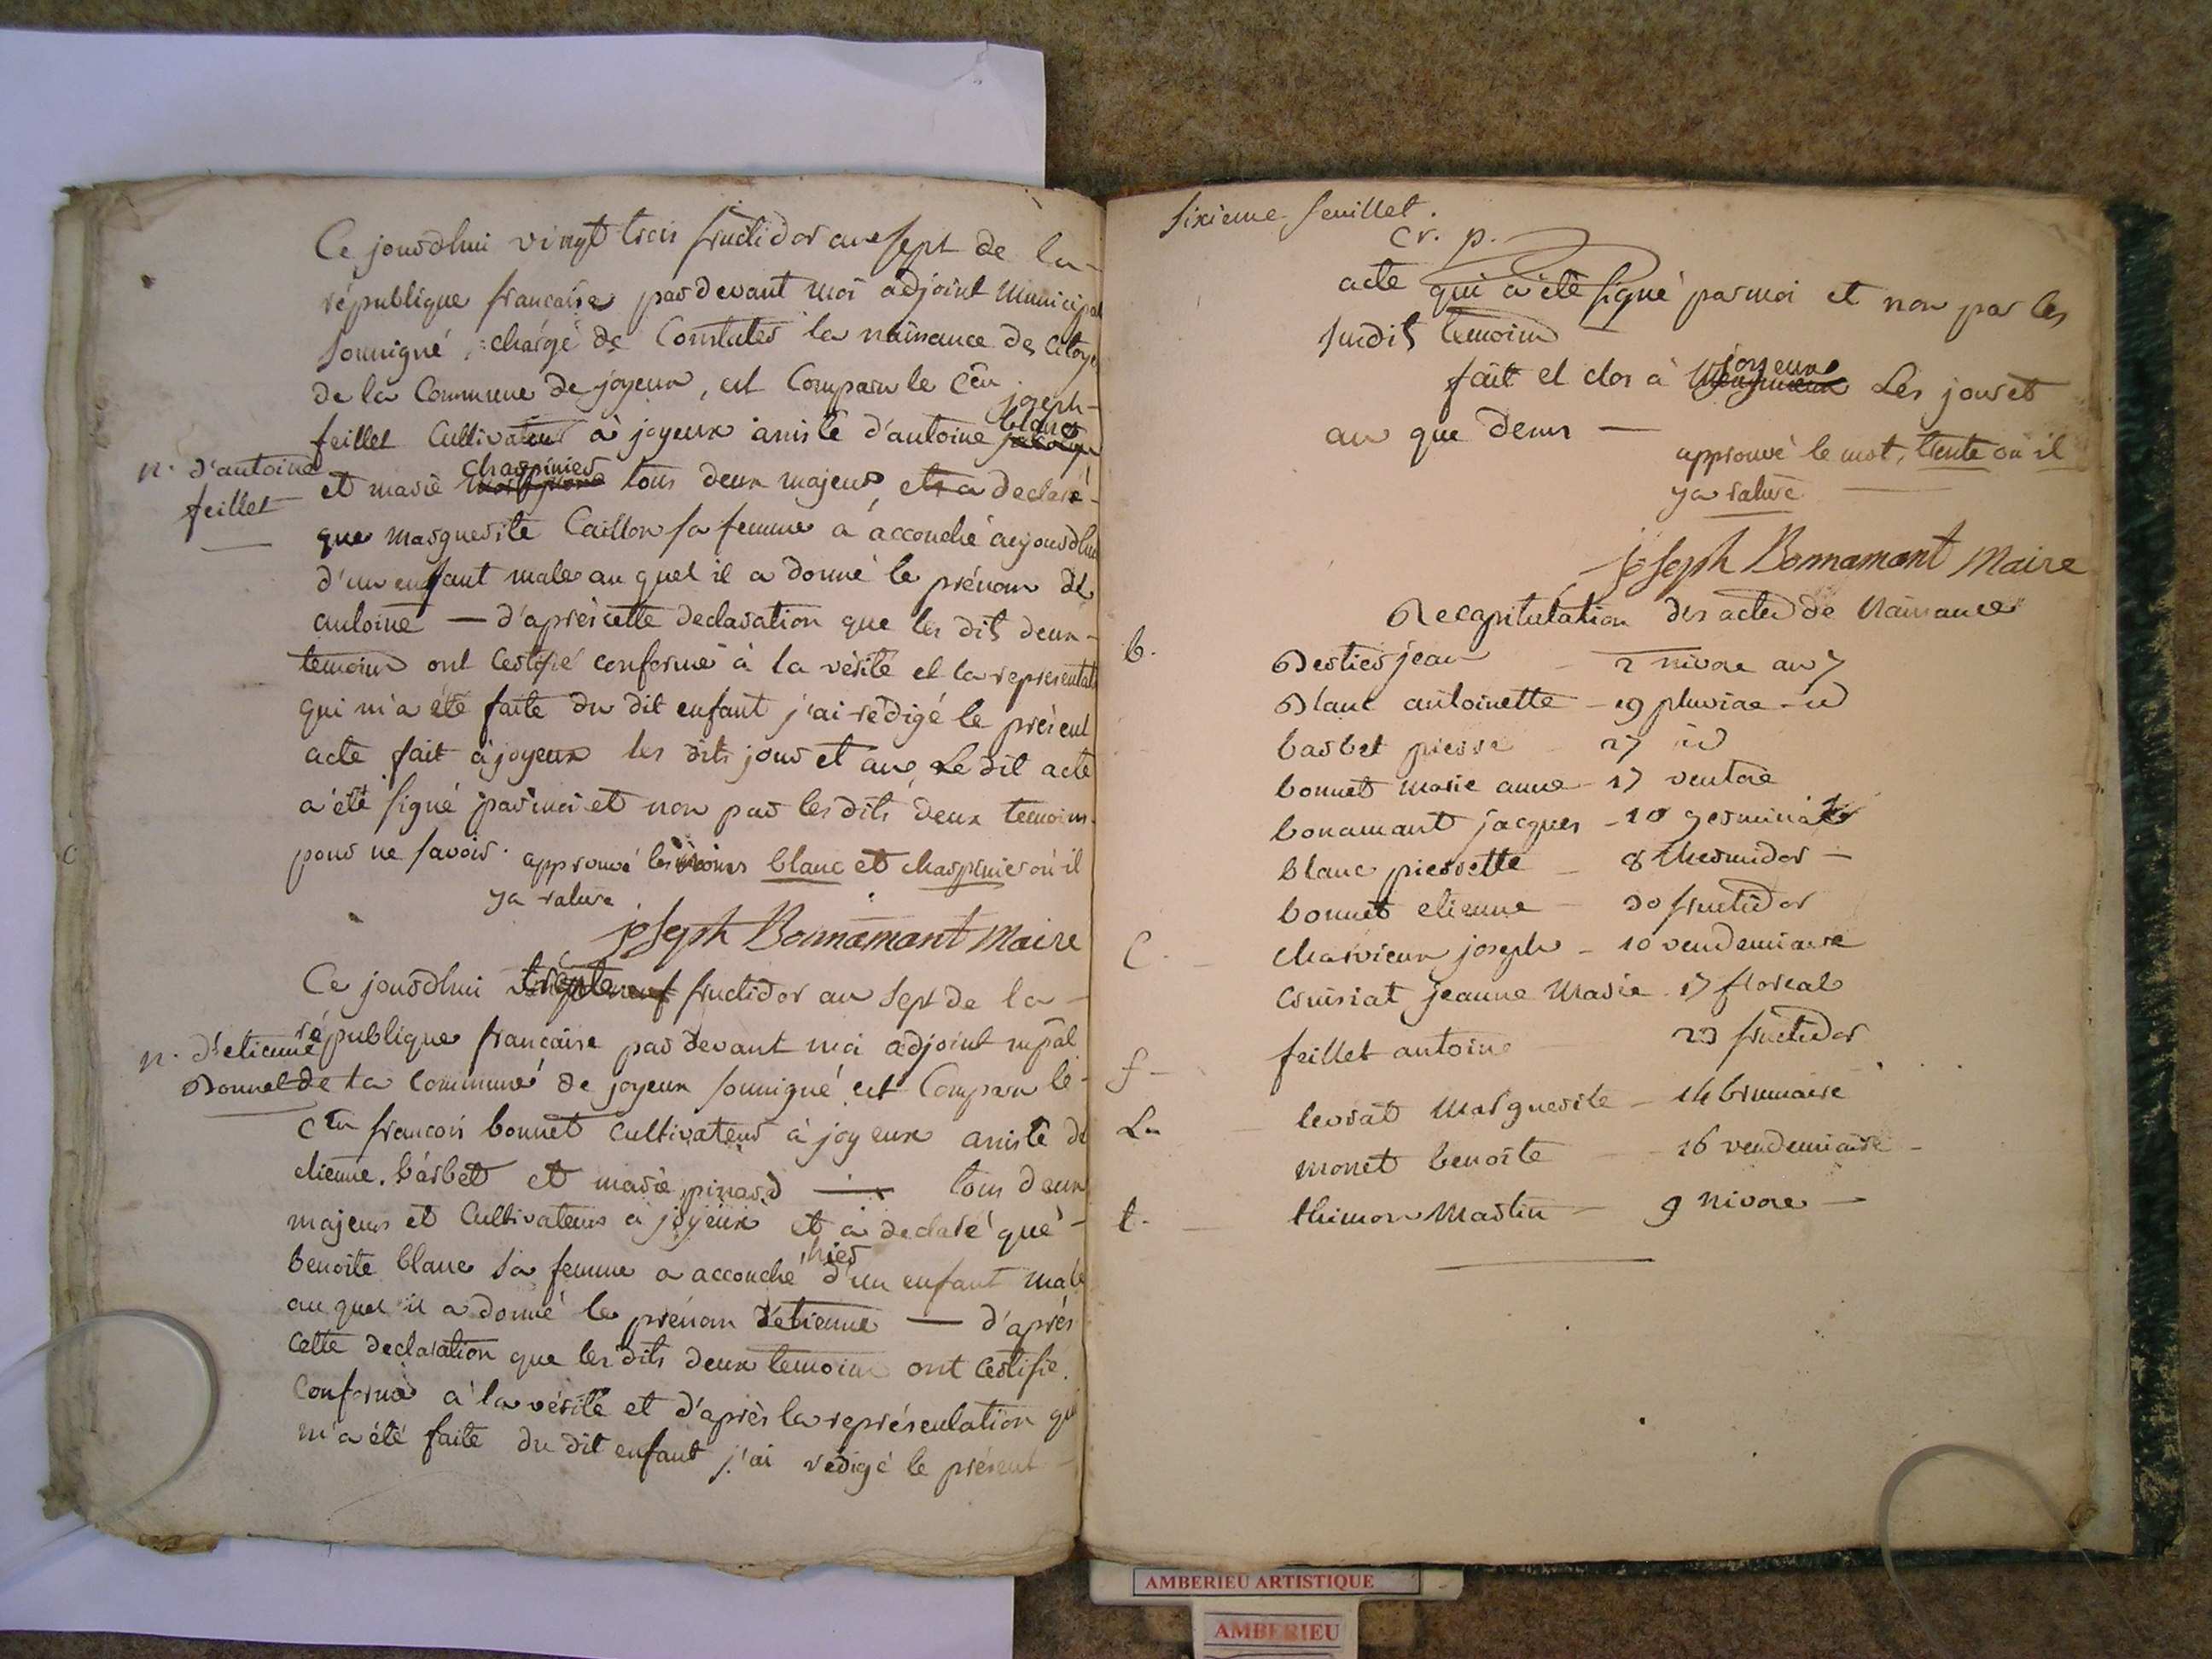 Ce jourdhui vingt trois fructidor an sept de la
république francaise pardevant moi adjoint municipal
soussigné, chargé de Constater la naissance des Citoye
de la Commune de joyeux, est Comparu le Cen joseph
feillet Cultivateur à joyeux assisté d'antoine blanc
n. d'antoine
feillet
et marie charpinier tous deux majeur, et a declaré
que marguerite Caillon sa femme a accouché aujourdhui
d'un enfant male au quel il a donné le prénom de
antoine — d'après cette declaration que les dits deux
temoins ont Certifié conforme à la vérité et la representati
qui m'a été faite du dit enfant j'ai redigé le présent
acte fait à joyeux les dits jour et an, Le dit acte
a été signé par moi et non par les dits deux temoins
pour ne savoir. approuvé les blanc et charpinier où il
y a rature
joseph Bonnamant Maire
Ce jourdhui trente fructidor an sept de la
n. d'etienne
Bonnet
république francaise pardevant moi adjoint mpal
de la Commune de joyeux soussigné est Comparu le
Cen francois bonnet Cultivateur à joyeux assisté de
etienne barbet et marie pinard — tous deux
majeurs et Cultivateurs à joyeux et a declaré que
benoite blanc sa femme a accouché hier d'un enfant male
au quel il a donné le prénom d'etienne — d'après
cette declaration que les dits deux temoins ont Certifié
Conforme a la vérité et d'après la représentation qui
m'a été faite du dit enfant j'ai rédigé le présent
sixieme feuillet.
cr. p.
acte qui a été signé par moi et non par les
susdits temoins
fait et clos à joyeux Les jour et
an que dessus —
approuvé le mot, trente où il
y a rature
joseph Bonnamant Maire
Recapitulation des actes de Naissance
b. Bertier jean — 2 nivose an 7
Blanc antoinette — 19 pluviose — id
barbet pierre 27 id
bonnet marie anne — 17 ventose
bonamant jacques — 10 germinal
blanc pierrette — 8 thermidor —
bonnet etienne — 30 fructidor
C. — Charvieux joseph — 10 vendemiaire
Cruisiat jeanne Marie — 17 floreal
f — feillet antoine 23 fructidor
L — levrat Marguerite — 14 brumaire
monet benoite — 16 vendemiaire —
t. — thimon Martin — 9 nivose —
AMBERIEU ARTISTIQUE
AMBERIEU